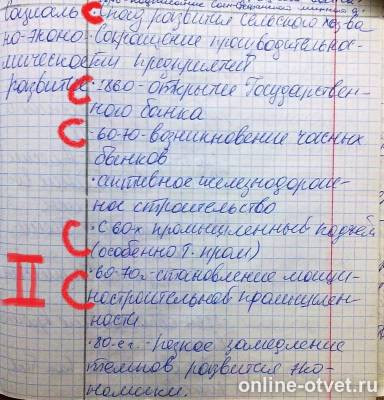 Социаль- · спад развития сельского хоз-ва
но-эконо- · Сокращение производительнос-
мическое ти предприятий
развитие · 1860 - открытие Государствен-
ного банка
· 60-70 - возникновение частных
банков
· активное железнодорож-
ное строительство
· С 60-х промышленный подъём
(особенно т. пром)
· 60-70 г - становление маши-
ностроительной промышлен-
ности
II
· 80-е г. - резкое замедление
темпов развития эко-
номики.
online-otvet.ru